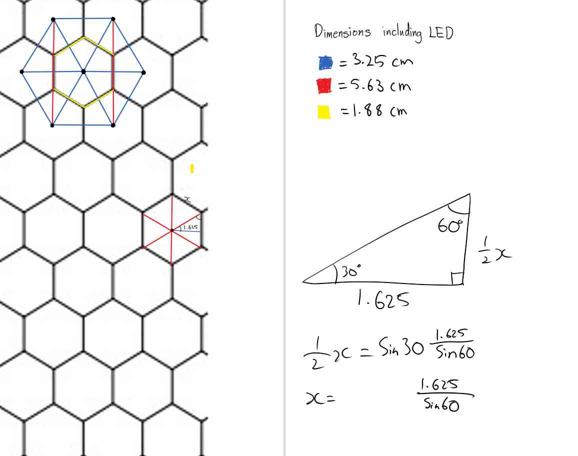 x
1.625
Dimensions including LED
= 3.25 cm
= 5.63 cm
= 1.88 cm
60°
1/2 x
30°
1.625
1/2 x = Sin 30 1.625/Sin60
x = 1.625/Sin60